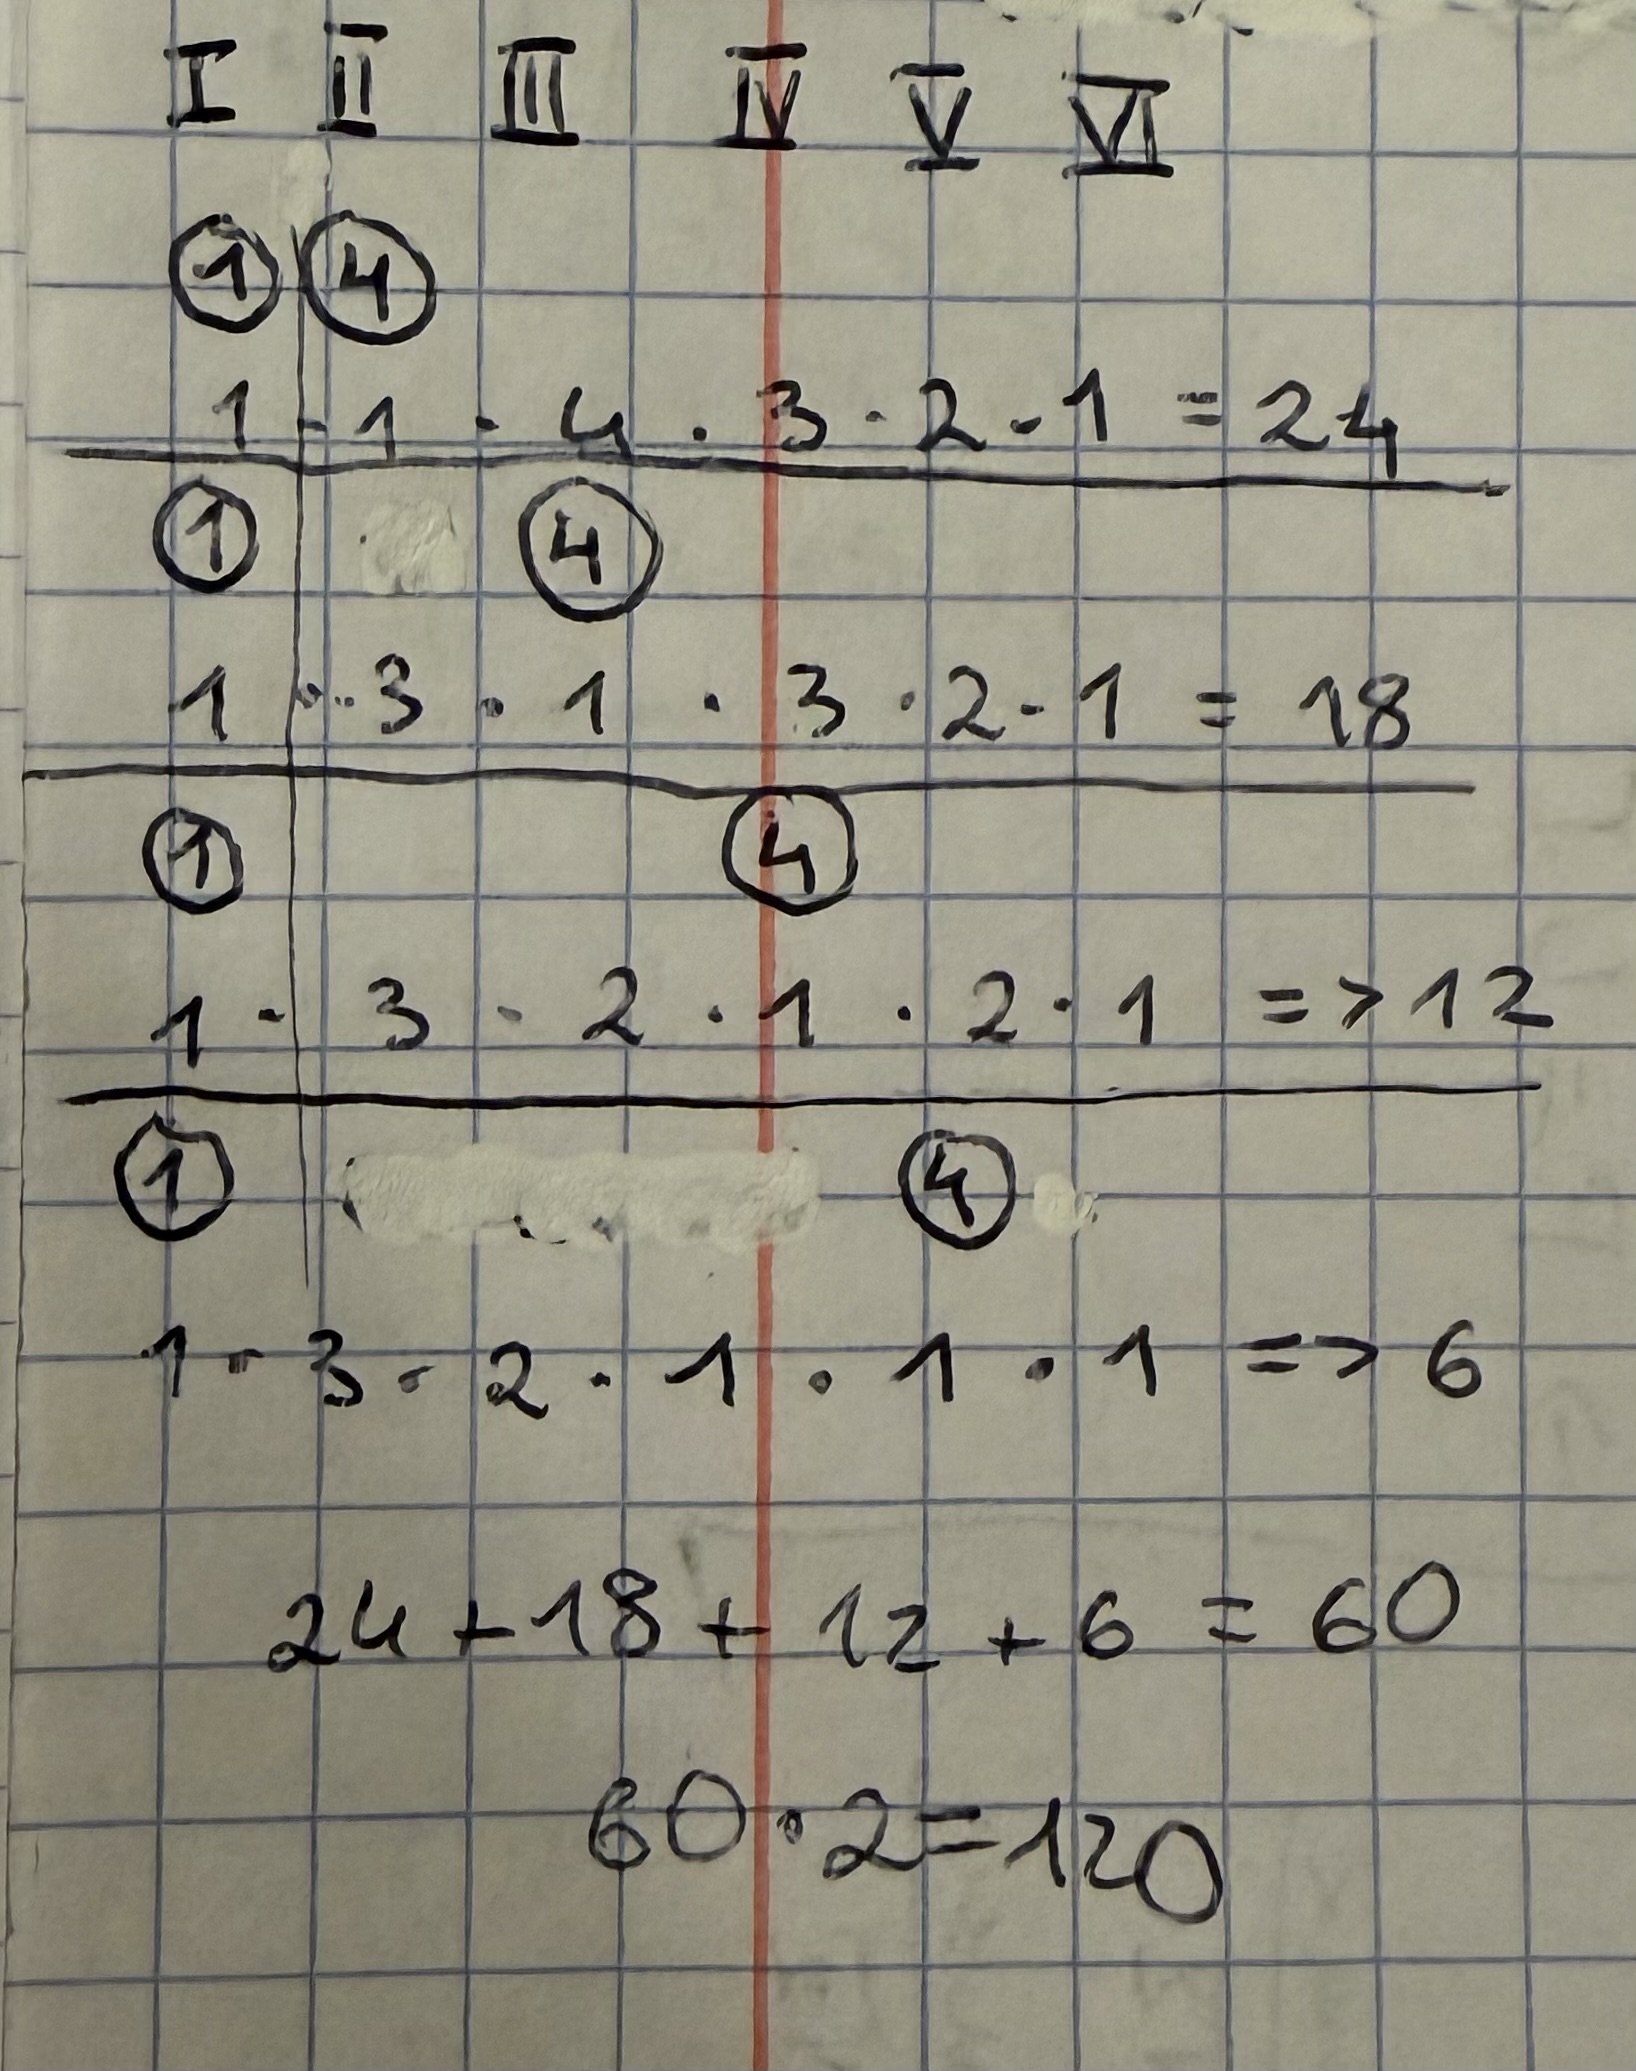 I II III IV V VI
1 4
1 · 1 · 4 · 3 · 2 · 1 = 24
1 4
1 · 3 · 1 · 3 · 2 · 1 = 18
1 4
1 · 3 · 2 · 1 · 2 · 1 => 12
1 4
1 · 3 · 2 · 1 · 1 · 1 => 6
24 + 18 + 12 + 6 = 60
60 · 2 = 120